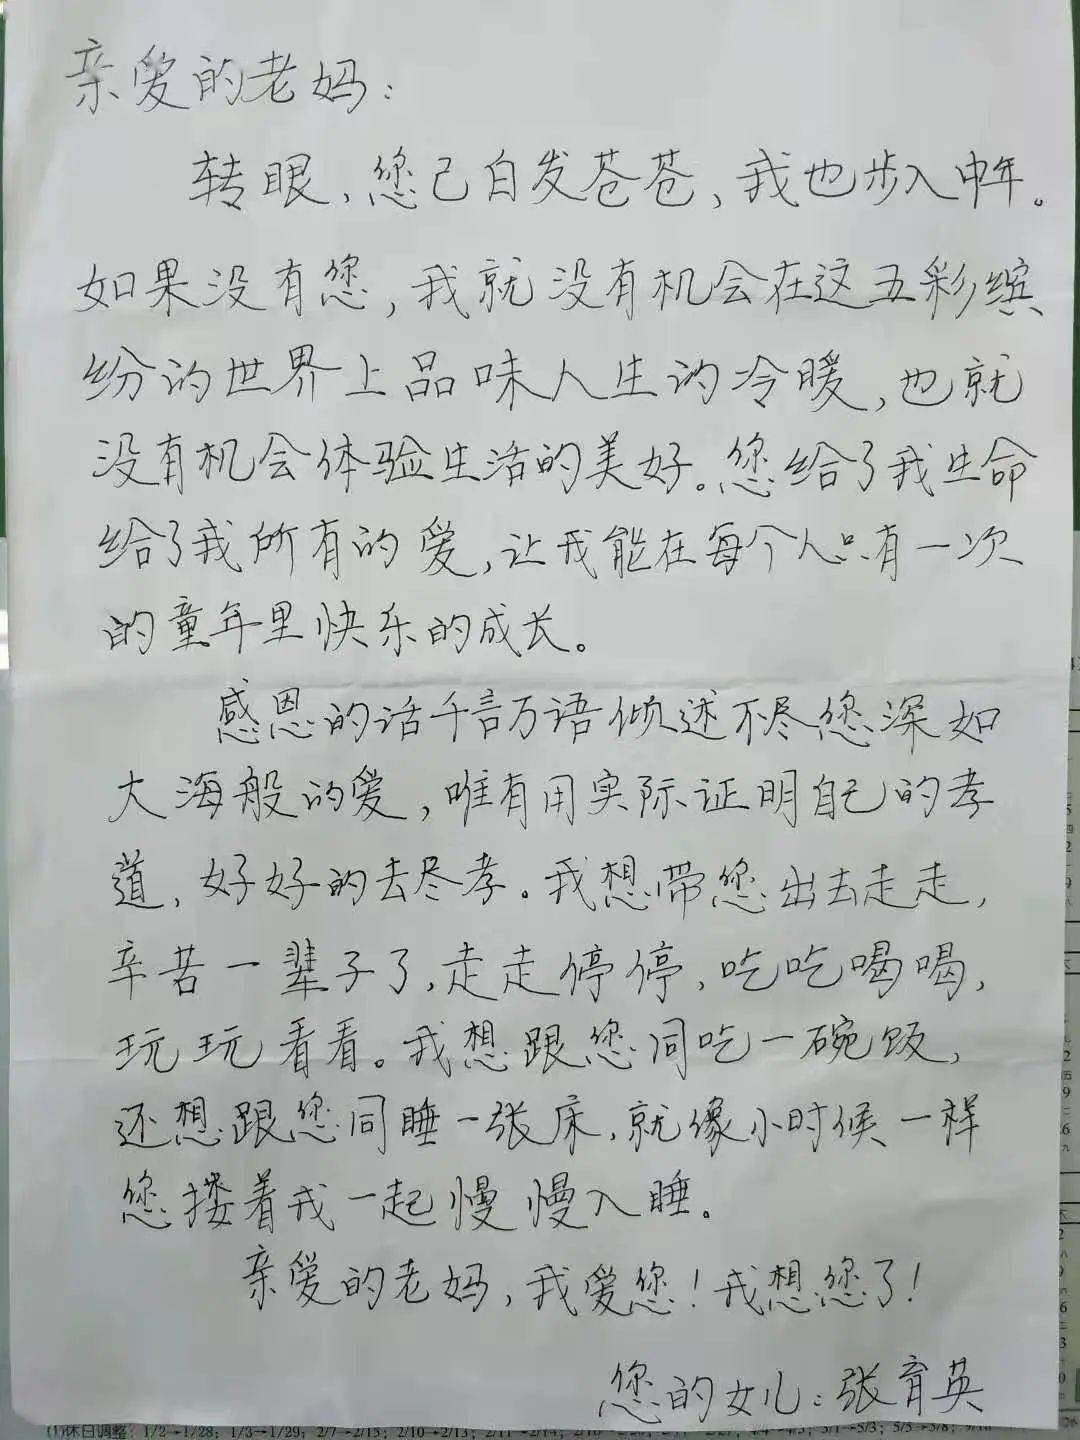 亲爱的老妈：
转眼、您已白发苍苍，我也步入中年。
如果没有您，我就没有机会在这五彩缤
纷的世界上品味人生的冷暖，也就
没有机会体验生活的美好。您给了我生命
给了我所有的爱，让我能在每个人只有一次
的童年里快乐的成长。
感恩的话千言万语倾述不尽您深如
大海般的爱，唯有用实际证明自己的孝
道，好好的去尽孝。我想带您出去走走，
辛苦一辈子了，走走停停，吃吃喝喝，
玩玩看看。我想跟您同吃一碗饭，
还想跟您同睡一张床，就像小时候一样
您搂着我一起慢慢入睡。
亲爱的老妈，我爱您！我想您了！
您的女儿：张育英
(1)休日调整：1/2→1/28；1/3→1/29；2/7→2/15；2/10→2/13；